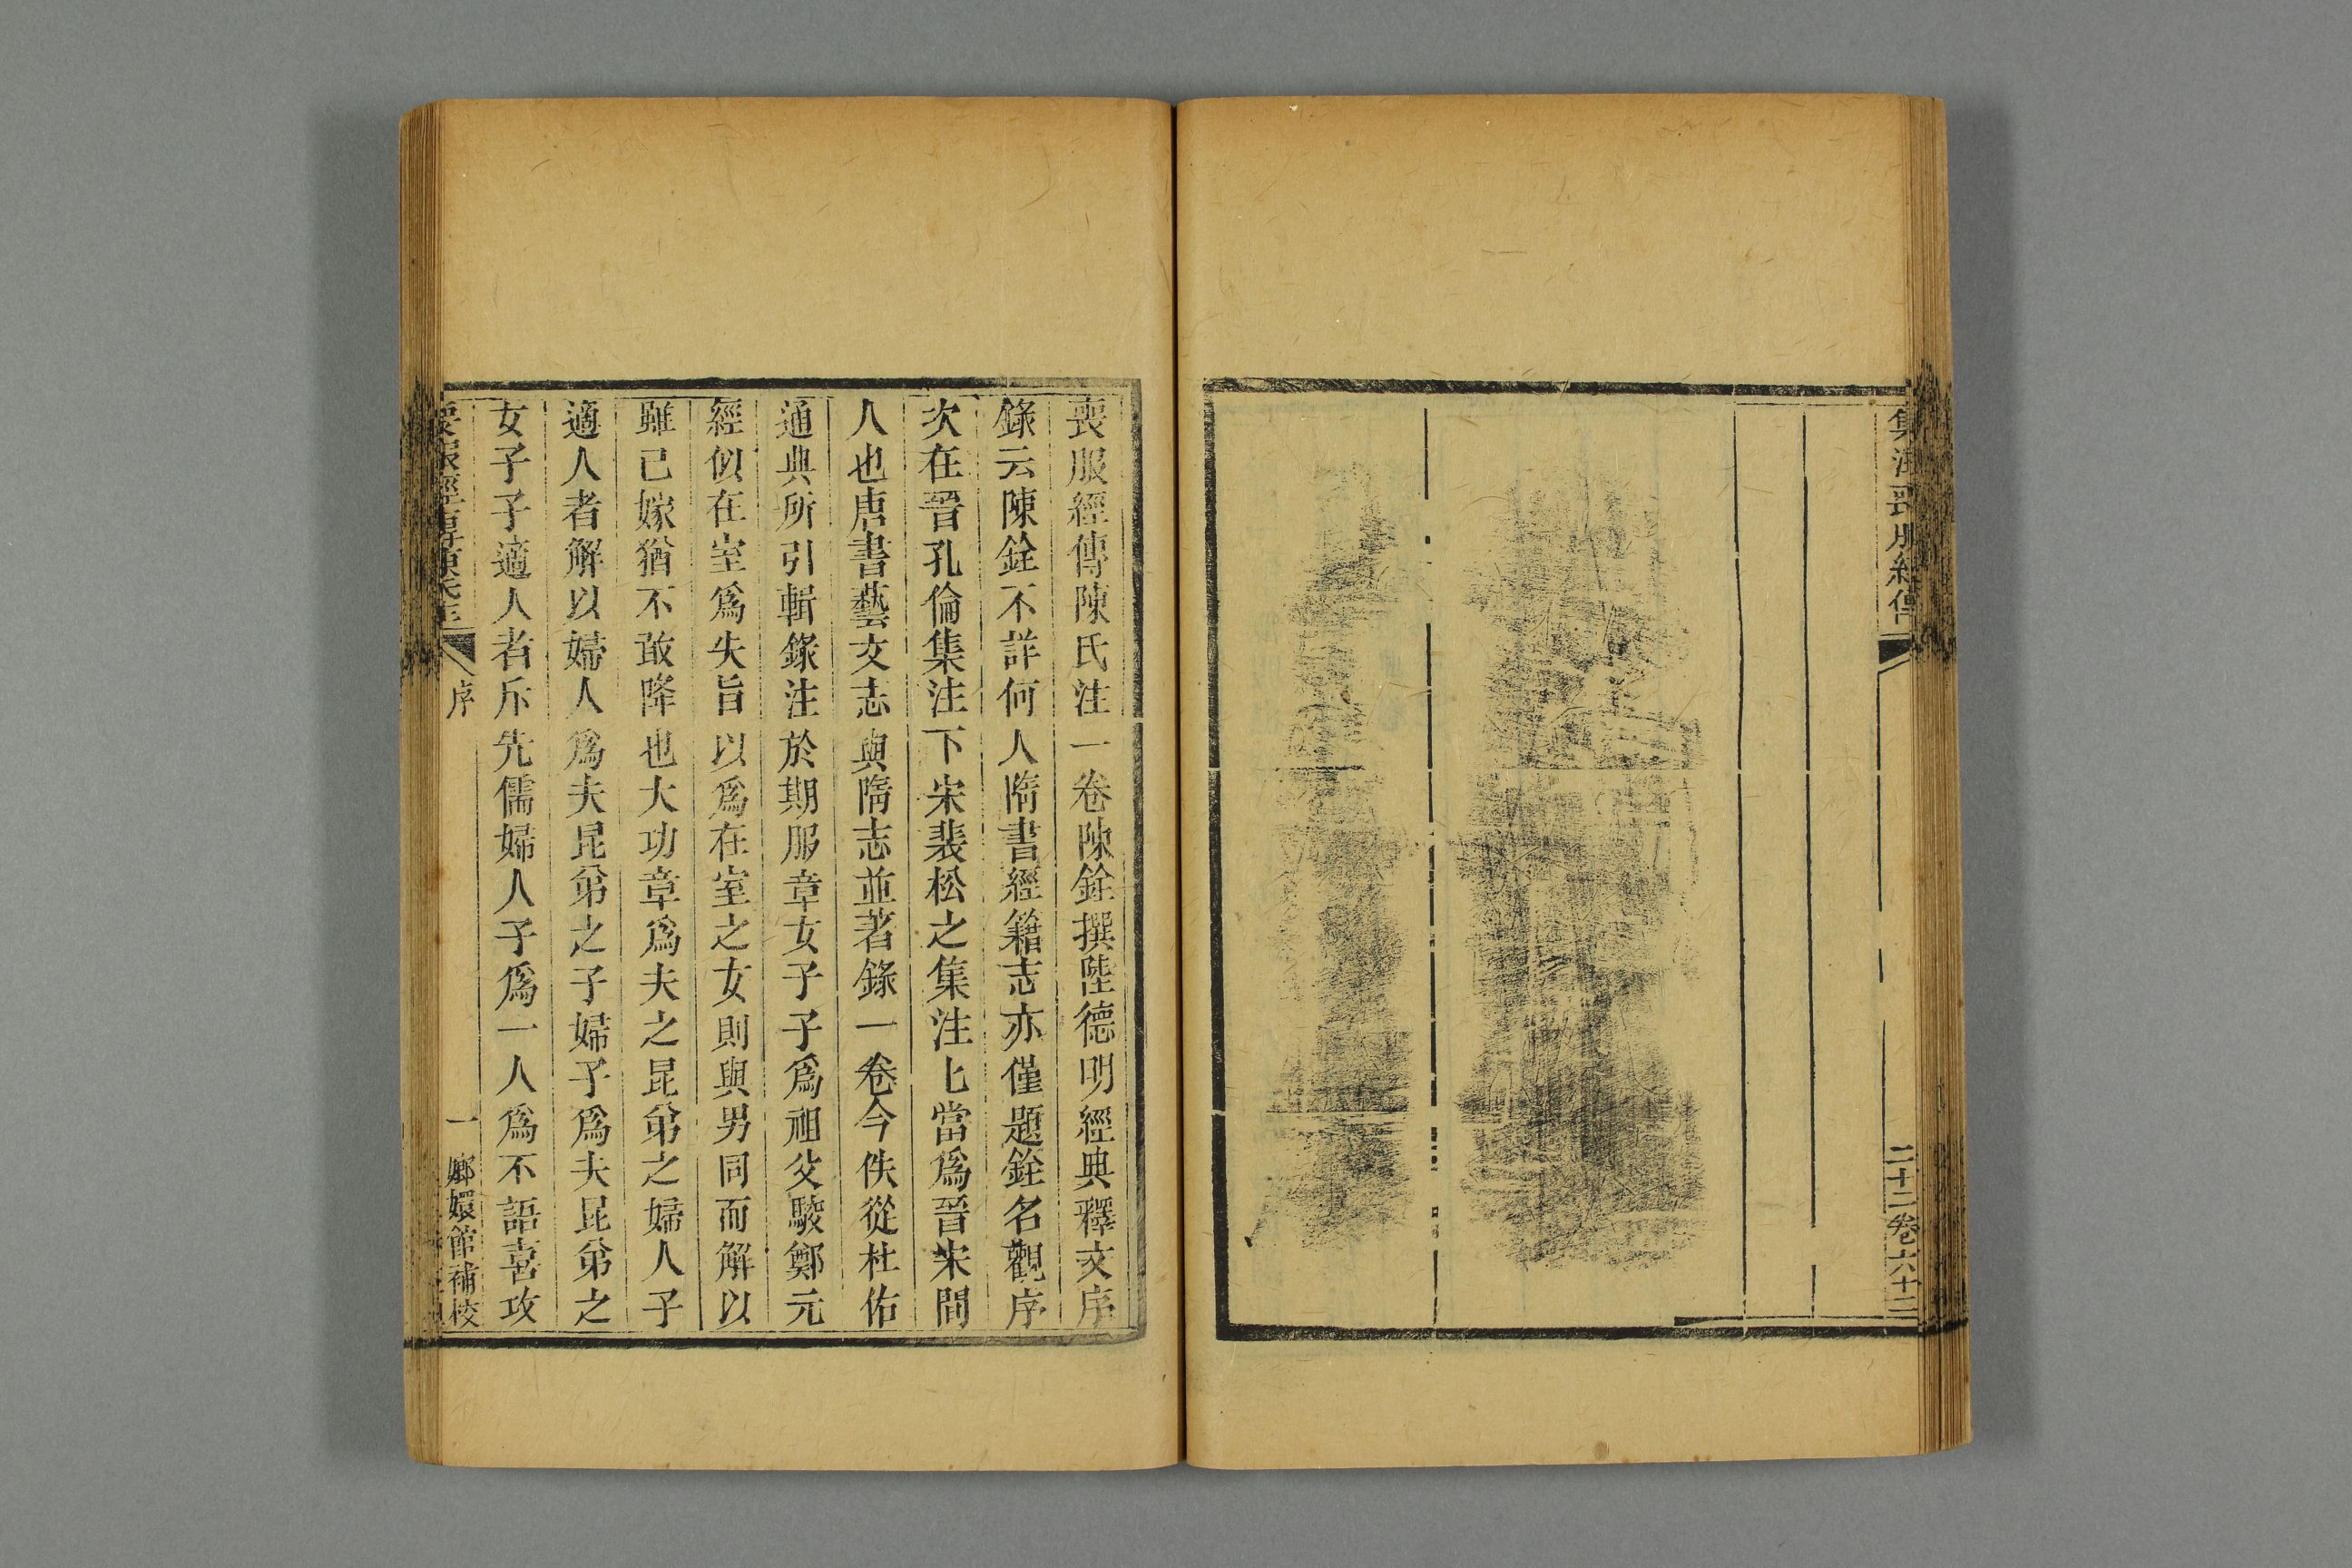 集注喪服經傳
二十二卷六十二
喪服經傳陳氏注一卷陳銓撰陸德明經典釋文序
錄云陳銓不詳何人隋書經籍志亦僅題銓名觀序
次在晉孔倫集注下宋裴松之集注上當爲晉宋間
人也唐書藝文志與隋志並著錄一卷今佚從杜佑
通典所引輯錄注於期服章女子子爲祖父駿鄭元
經似在室爲失旨以爲在室之女則與男同而解以
雖已嫁猶不敢降也大功章爲夫之昆弟之婦人子
適人者解以婦人爲夫昆弟之子婦子爲夫昆弟之
女子子適人者斥先儒婦人子爲一人爲不語喜攻
喪服經傳陳氏注
序
一
嫏嬛館補校